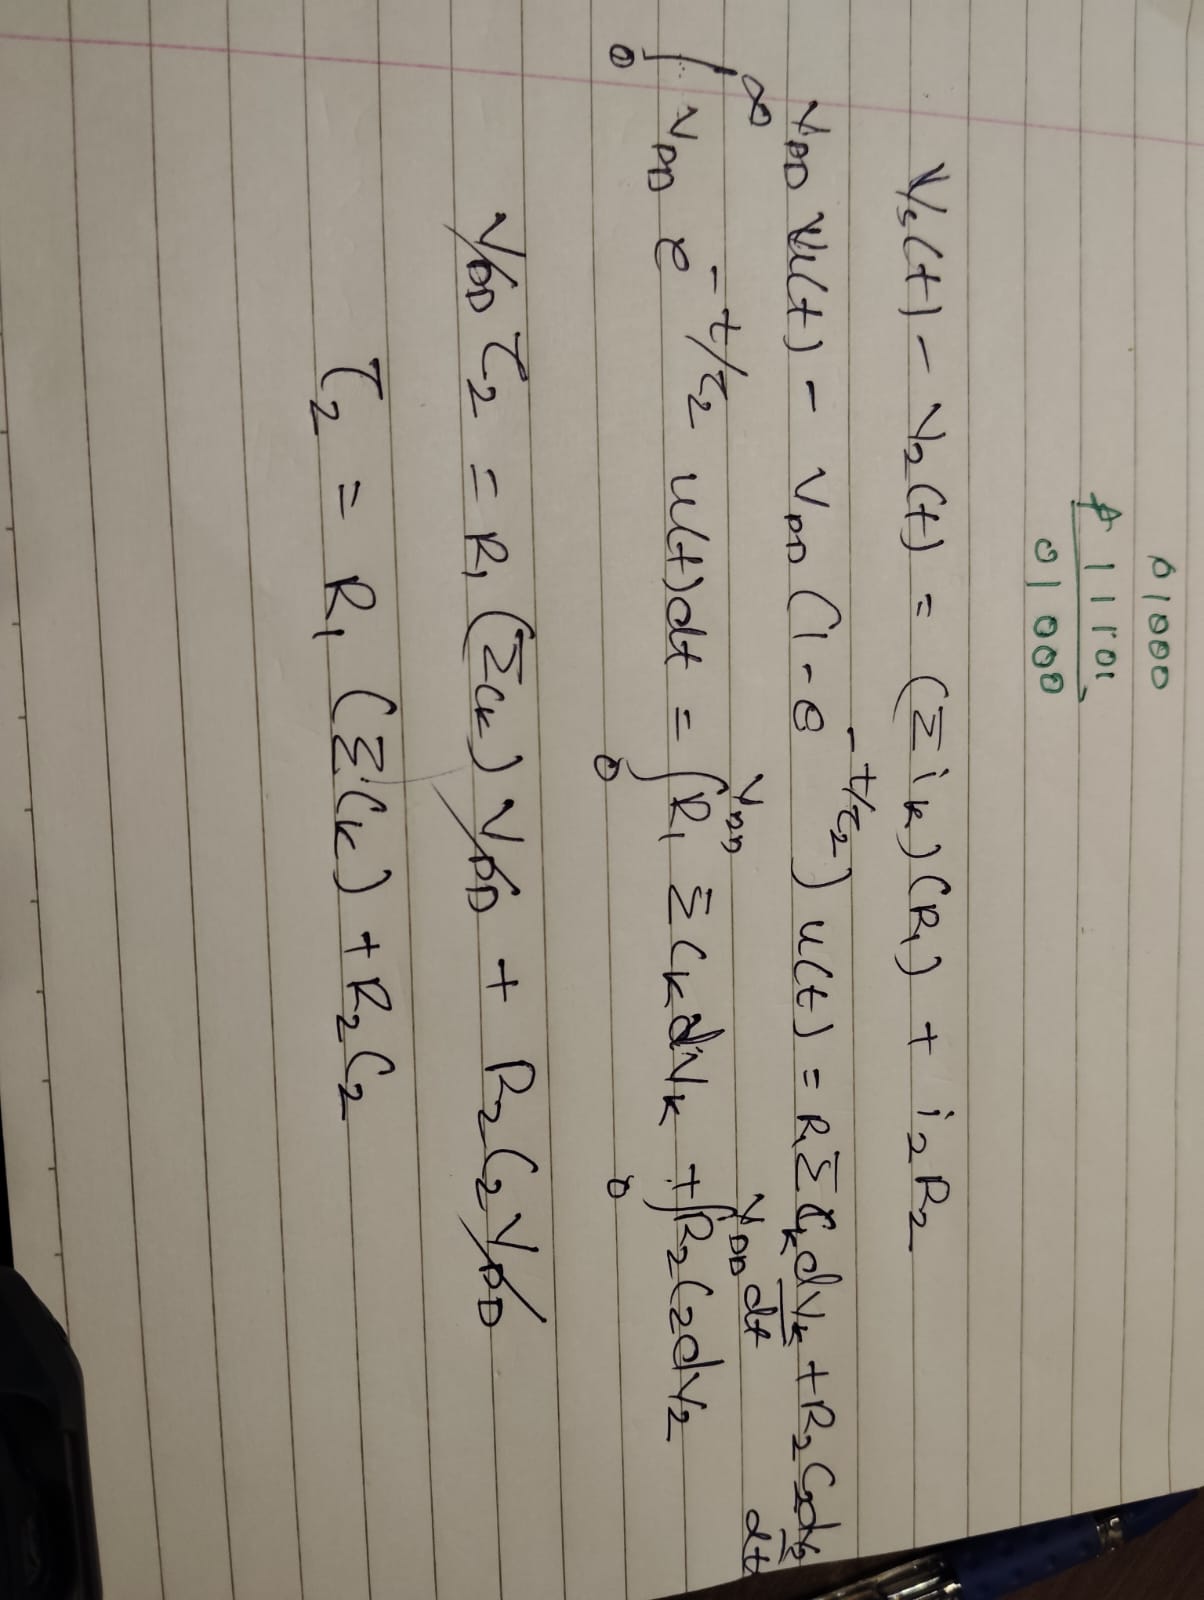 01000
11101
01000
V_s(t) - V_2(t) = (Σ i_k)(R_1) + i_2 R_2
V_DD u(t) - V_DD (1 - e^{-t/τ_2}) u(t) = R_1 Σ C_k dV_k/dt + R_2 C_2 dV_2/dt
∫_0^∞ V_DD e^{-t/τ_2} u(t) dt = ∫_0^{V_DD} R_1 Σ C_k dV_k + ∫_0^{V_DD} R_2 C_2 dV_2
V_DD τ_2 = R_1 (Σ C_k) V_DD + R_2 C_2 V_DD
τ_2 = R_1 (Σ C_k) + R_2 C_2